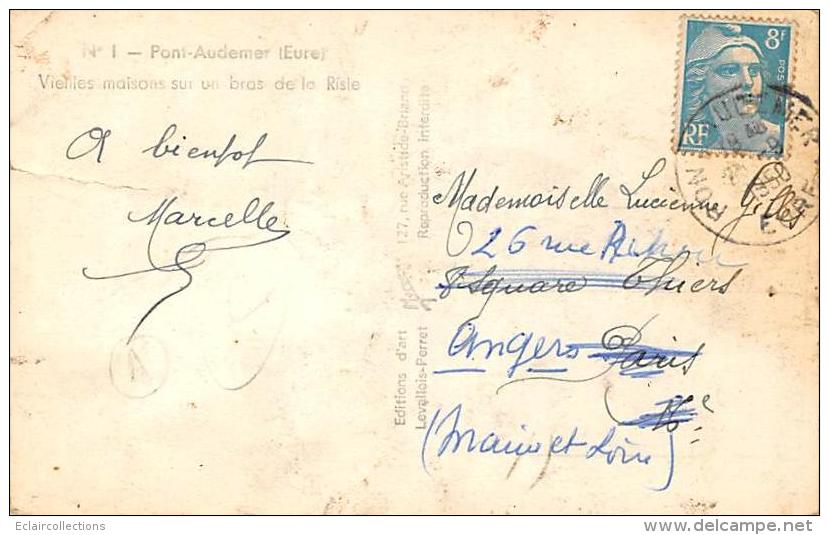 N° 1 — Pont-Audemer (Eure)
Vieilles maisons sur un bras de la Risle
A bientot
Marcelle
Editions d'art
Levallois-Perret
127, rue Aristide-Briand
Reproduction interdite
8F
POSTES
RF
Mademoiselle Lucienne Gilles
26 rue
8 Square Thiers
Angers Paris
16e
(Maine et Loire)
Eclaircollections
www.delcampe.net